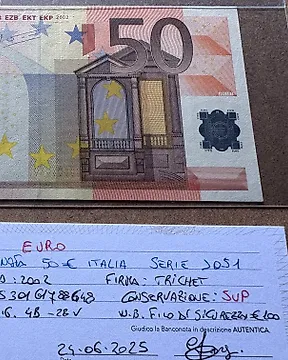 EZB EKT EKP 2002
50
EURO
50 € ITALIA SERIE J051
: 2002 FIRMA: TRICHET
S30161788648 CONSERVAZIONE: SUP
N.B. FILO DI SICUREZZA € 200
Giudico la Banconota in descrizione AUTENTICA
24-06-2025